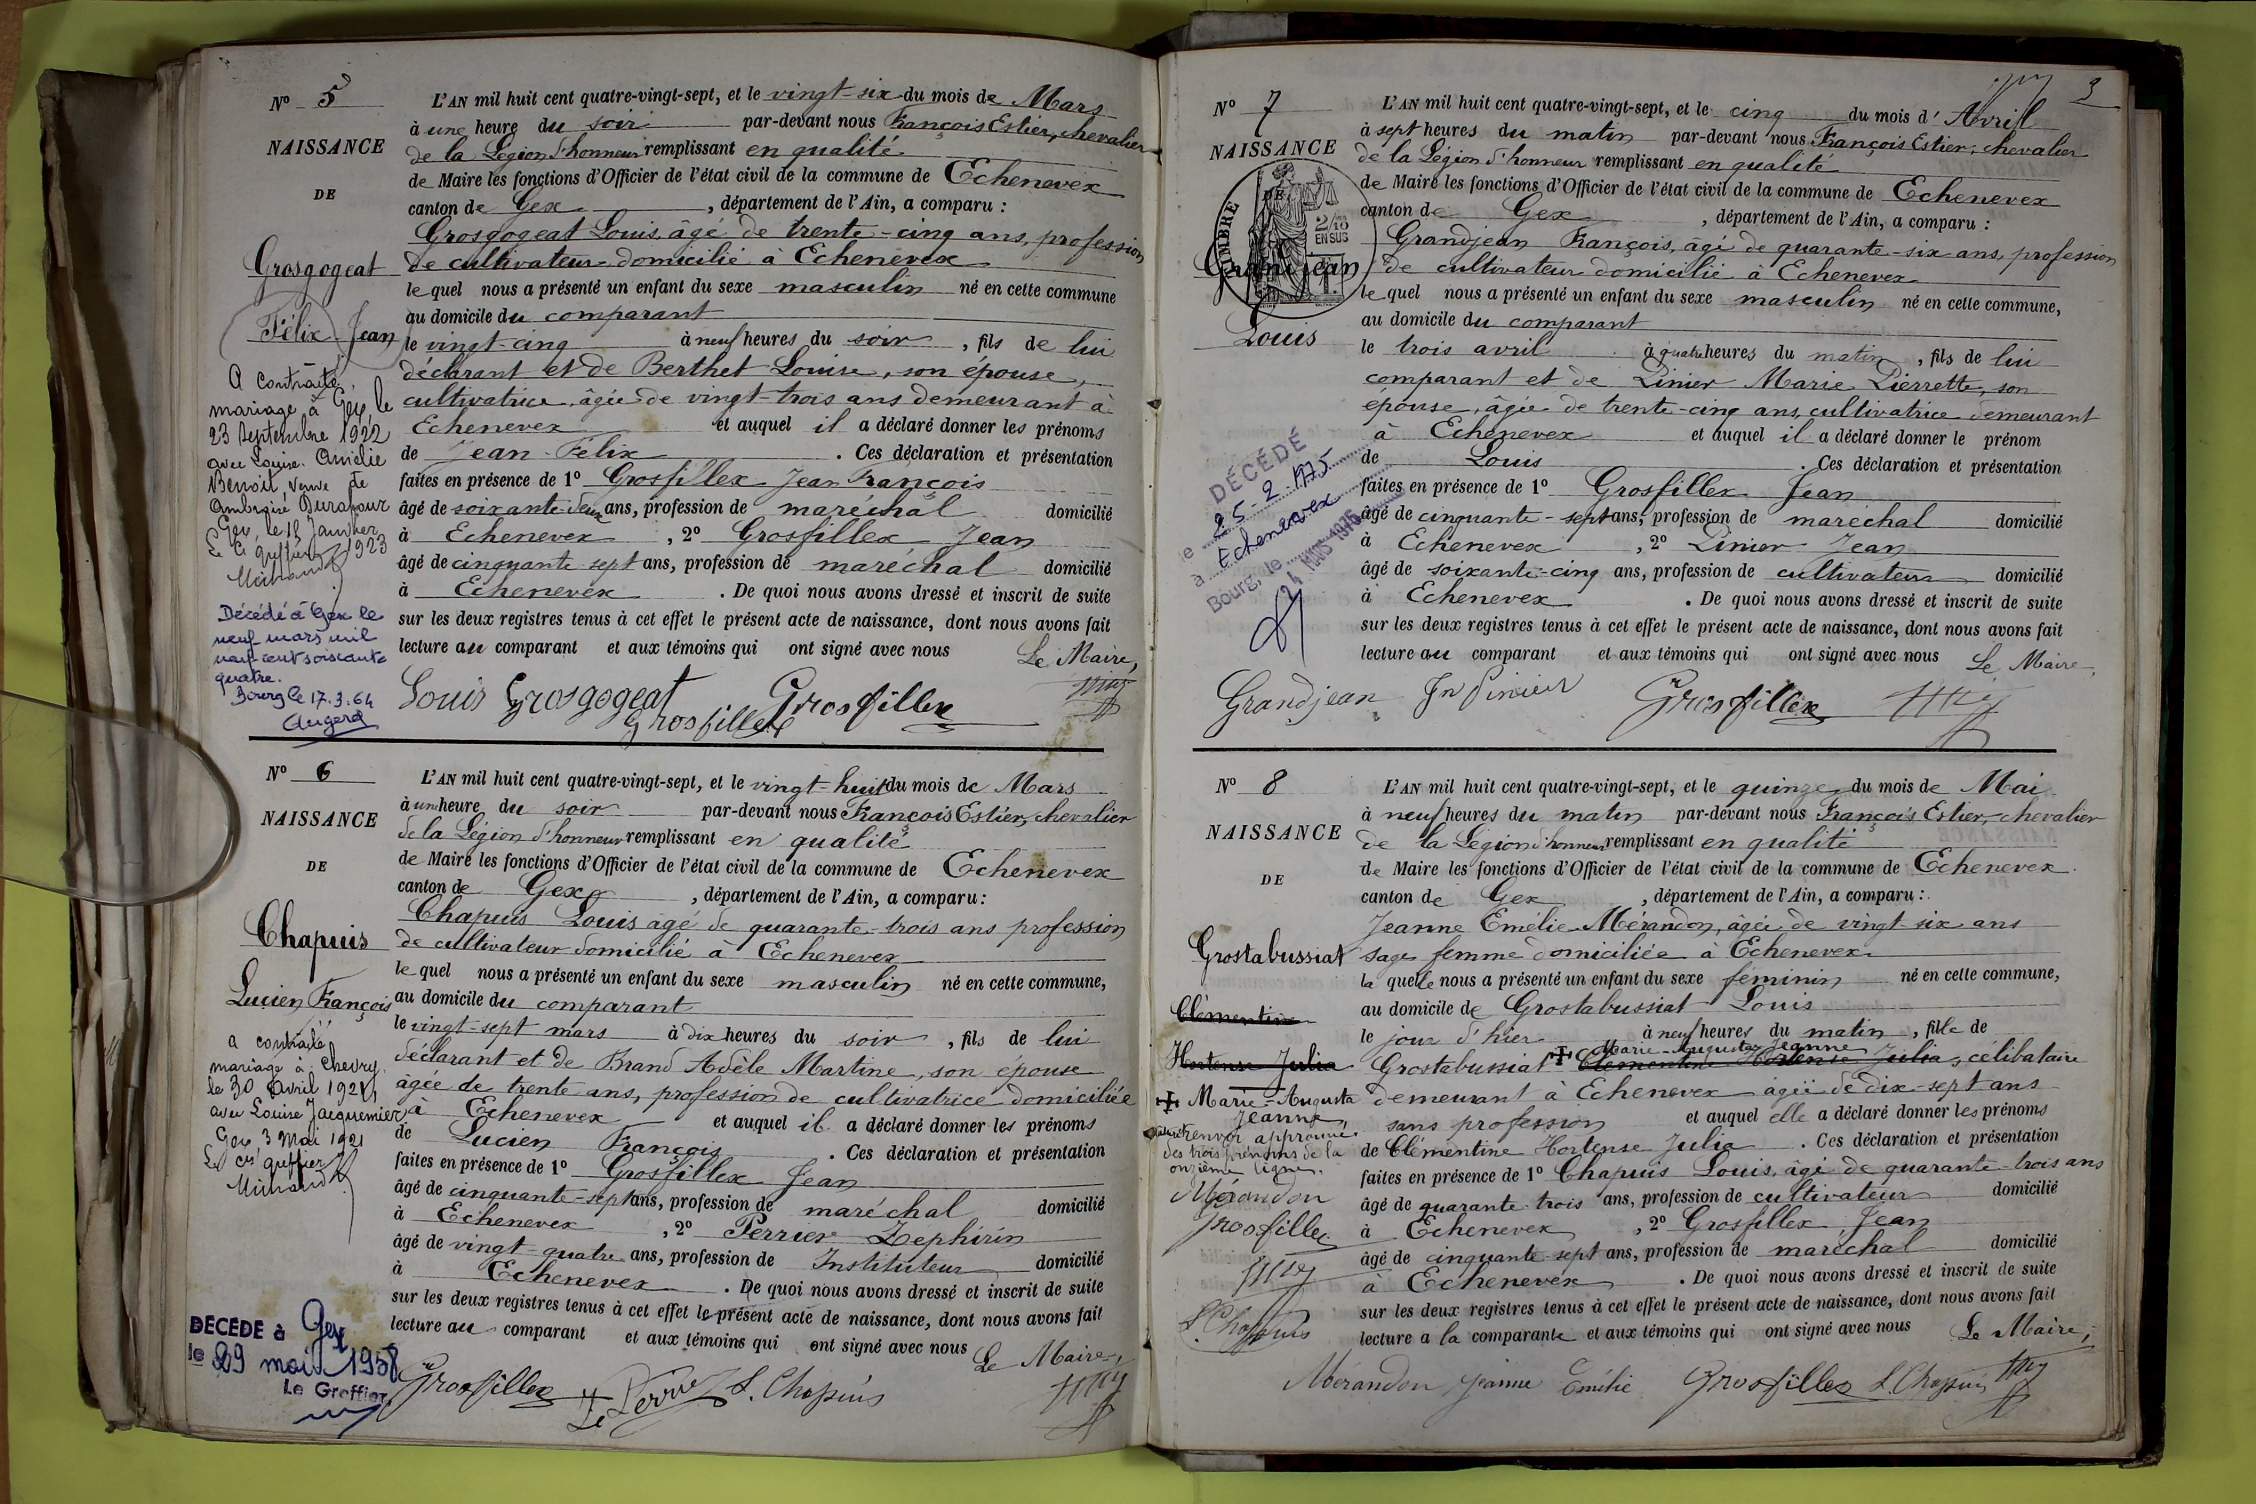 Nº 5
NAISSANCE
DE
Grosgogeat
Félix Jean
A contracté
mariage à Gex, le
23 Septembre 1922
avec Louise Amélie
Benoit, veuve de
Ambroise Durafour
Gex, le 18 Janvier
1923
Le Cs greffier
Décédé à Gex le
neuf mars mil
neuf cent soixante
quatre.
Bourg le 17.3.64
L'AN mil huit cent quatre-vingt-sept, et le vingt-six du mois de Mars
à une heure du soir par-devant nous François Estier, chevalier
de la Légion d'honneur remplissant en qualité
de Maire les fonctions d'Officier de l'état civil de la commune de Echenevex
canton de Gex, département de l'Ain, a comparu :
Grosgogeat Louis, âgé de trente-cinq ans, profession
de cultivateur domicilié à Echenevex
le quel nous a présenté un enfant du sexe masculin né en cette commune
au domicile du comparant
le vingt-cinq à neuf heures du soir, fils de lui
déclarant et de Berthet Louise, son épouse,
cultivatrice, âgée de vingt-trois ans demeurant à
Echenevex et auquel il a déclaré donner les prénoms
de Jean-Félix. Ces déclaration et présentation
faites en présence de 1º Grosfillex Jean François
âgé de soixante-deux ans, profession de maréchal domicilié
à Echenevex, 2º Grosfillex Jean
âgé de cinquante sept ans, profession de maréchal domicilié
à Echenevex. De quoi nous avons dressé et inscrit de suite
sur les deux registres tenus à cet effet le présent acte de naissance, dont nous avons fait
lecture au comparant et aux témoins qui ont signé avec nous
Le Maire,
Louis Grosgogeat Grosfillex
Grosfillex
Nº 6
NAISSANCE
DE
Chapuis
Lucien François
a contracté
mariage à Chevry
le 30 avril 1921,
avec Louise Jacquemier
Gex 3 Mai 1921
Le Cs greffier
DÉCÉDÉ à Gex
le 29 mai 1958
Le Greffier,
L'AN mil huit cent quatre-vingt-sept, et le vingt-huit du mois de Mars
à une heure du soir par-devant nous François Estier, chevalier
de la Légion d'honneur remplissant en qualité
de Maire les fonctions d'Officier de l'état civil de la commune de Echenevex
canton de Gex, département de l'Ain, a comparu :
Chapuis Louis âgé de quarante-trois ans profession
de cultivateur domicilié à Echenevex
le quel nous a présenté un enfant du sexe masculin né en cette commune,
au domicile du comparant
le vingt-sept mars à dix heures du soir, fils de lui
déclarant et de Brand Adèle Martine, son épouse
âgée de trente ans, profession de cultivatrice domiciliée
à Echenevex et auquel il a déclaré donner les prénoms
de Lucien François. Ces déclaration et présentation
faites en présence de 1º Grosfillex Jean
âgé de cinquante-sept ans, profession de maréchal domicilié
à Echenevex, 2º Perrier Zephirin
âgé de vingt-quatre ans, profession de Instituteur domicilié
à Echenevex. De quoi nous avons dressé et inscrit de suite
sur les deux registres tenus à cet effet le présent acte de naissance, dont nous avons fait
lecture au comparant et aux témoins qui ont signé avec nous
Le Maire,
Grosfillex L. Chapuis
3
Nº 7
NAISSANCE
DE
TIMBRE
2/10
EN SUS
Grandjean
Louis
DÉCÉDÉ
le 25-2-1975
à Echenevex
Bourg, le 24 MARS 1975
L'AN mil huit cent quatre-vingt-sept, et le cinq du mois d'Avril
à sept heures du matin par-devant nous François Estier, chevalier
de la Légion d'honneur remplissant en qualité
de Maire les fonctions d'Officier de l'état civil de la commune de Echenevex
canton de Gex, département de l'Ain, a comparu :
Grandjean François, âgé de quarante-six ans, profession
de cultivateur domicilié à Echenevex
le quel nous a présenté un enfant du sexe masculin né en cette commune,
au domicile du comparant
le trois avril à quatre heures du matin, fils de lui
comparant et de Pinier Marie Pierrette, son
épouse, âgée de trente-cinq ans, cultivatrice demeurant
à Echenevex et auquel il a déclaré donner le prénom
de Louis. Ces déclaration et présentation
faites en présence de 1º Grosfillex Jean
âgé de cinquante-sept ans, profession de maréchal domicilié
à Echenevex, 2º Pinier Jean
âgé de soixante-cinq ans, profession de cultivateur domicilié
à Echenevex. De quoi nous avons dressé et inscrit de suite
sur les deux registres tenus à cet effet le présent acte de naissance, dont nous avons fait
lecture au comparant et aux témoins qui ont signé avec nous
Le Maire,
Grandjean Jn Pinier Grosfillex
Nº 8
NAISSANCE
DE
Grostabussiat
Clémentine
Hortense Julia
Marie-Augusta
Jeanne
renvoi approuvé
des trois prénoms de la
onzième ligne.
Mérandon
Grosfillex
L. Chapuis
L'AN mil huit cent quatre-vingt-sept, et le quinze du mois de Mai
à neuf heures du matin par-devant nous François Estier, chevalier
de la Légion d'honneur remplissant en qualité
de Maire les fonctions d'Officier de l'état civil de la commune de Echenevex
canton de Gex, département de l'Ain, a comparu :
Jeanne Emélie Mérandon, âgée de vingt-six ans
sage femme domiciliée à Echenevex
la quelle nous a présenté un enfant du sexe féminin né en cette commune,
au domicile de Grostabussiat Louis
le jour d'hier à neuf heures du matin, fille de
Marie-Augusta Jeanne
Grostabussiat Clémentine Hortense Julia, célibataire
demeurant à Echenevex âgée de dix-sept ans
sans profession et auquel elle a déclaré donner les prénoms
de Clémentine Hortense Julia. Ces déclaration et présentation
faites en présence de 1º Chapuis Louis, âgé de quarante-trois ans
âgé de quarante trois ans, profession de cultivateur domicilié
à Echenevex, 2º Grosfillex Jean
âgé de cinquante-sept ans, profession de maréchal domicilié
à Echenevex. De quoi nous avons dressé et inscrit de suite
sur les deux registres tenus à cet effet le présent acte de naissance, dont nous avons fait
lecture a la comparante et aux témoins qui ont signé avec nous
Le Maire,
Mérandon Jeanne Emélie Grosfillex L. Chapuis